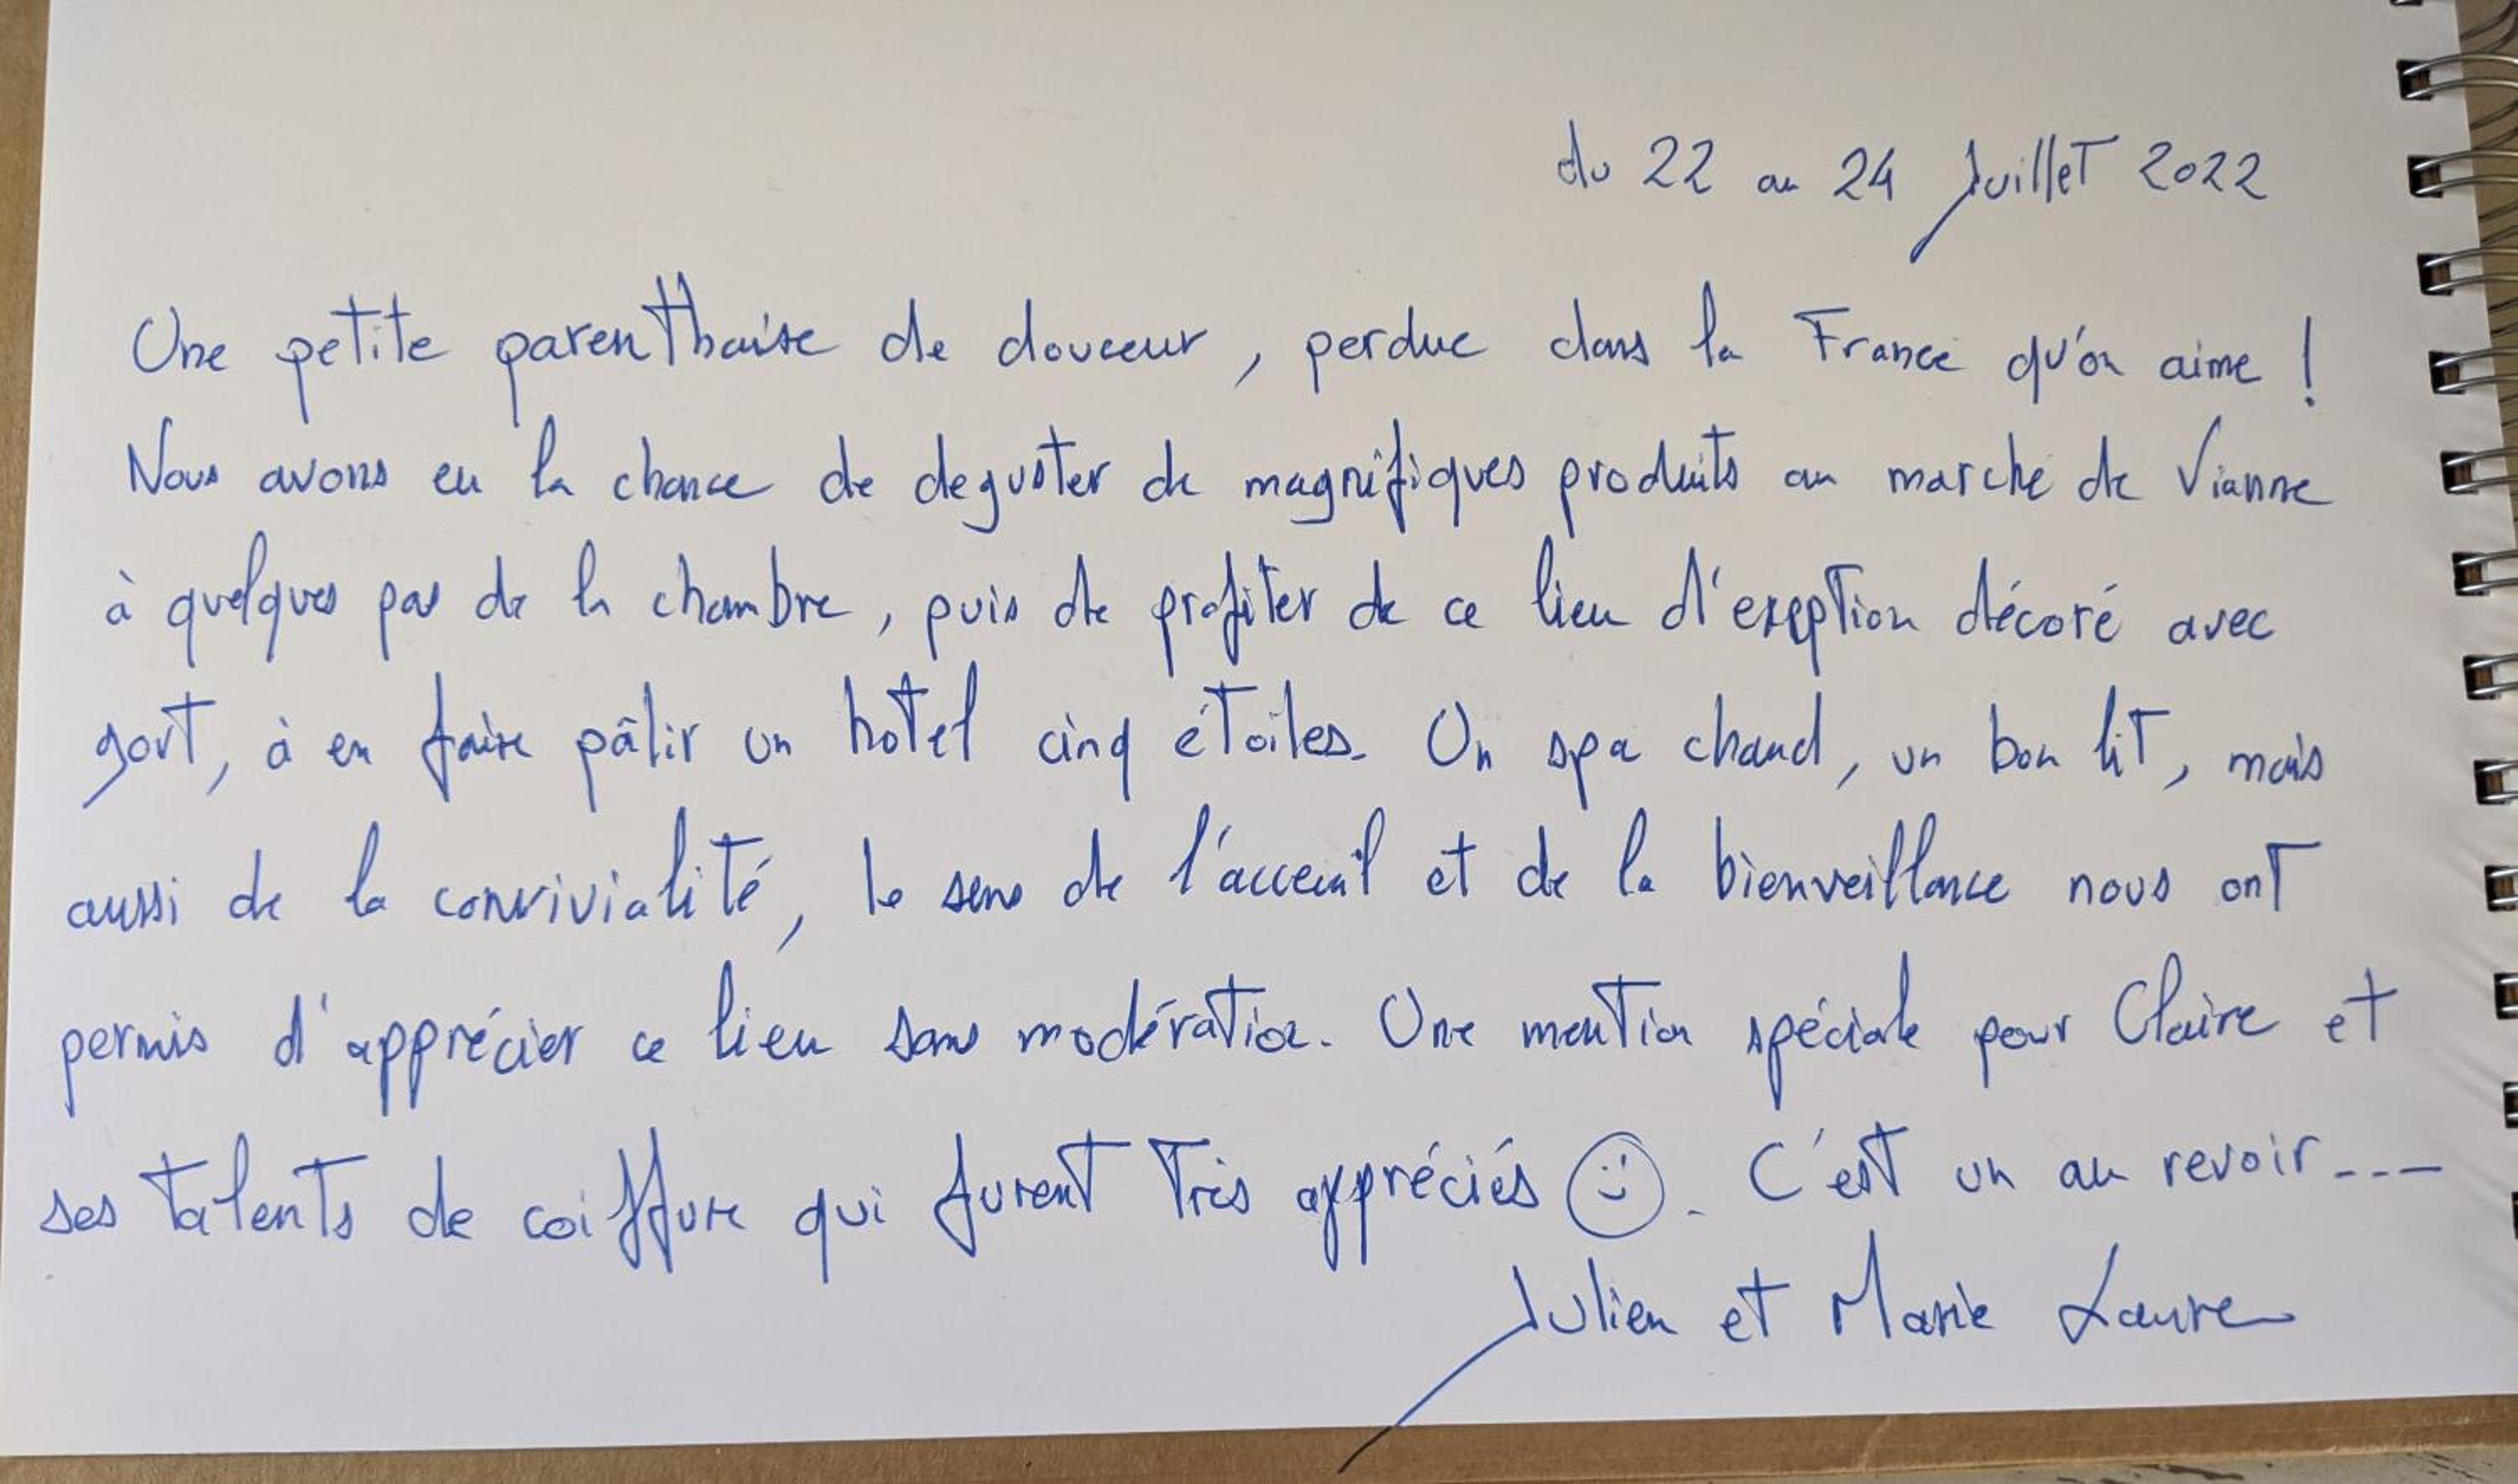 du 22 au 24 Juillet 2022
Une petite parenthaise de douceur, perdue dans la France qu'on aime !
Nous avons eu la chance de deguster de magnifiques produits au marché de Vianne
à quelques pas de la chambre, puis de profiter de ce lieu d'exeption décoré avec
gout, à en faire pâlir un hotel cinq étoiles. Un spa chaud, un bon lit, mais
aussi de la convivialité, le sens de l'acceuil et de la bienveillance nous ont
permis d'apprécier ce lieu sans modération. Une mention spéciale pour Claire et
ses talents de coiffure qui furent très appréciés ☺. C'est un au revoir....
Julien et Marie Laure